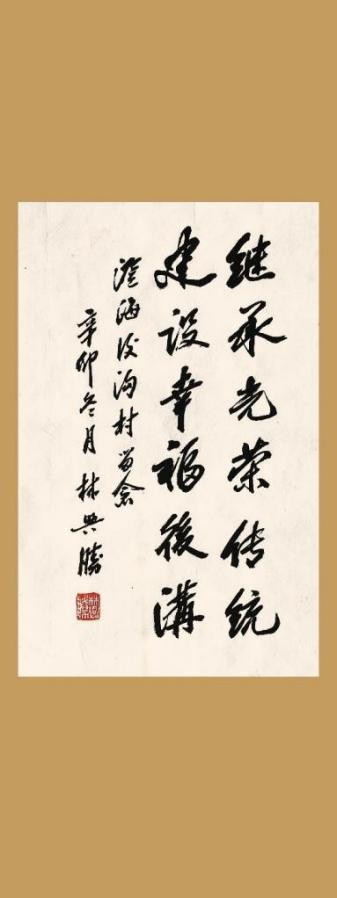 继承光荣传统
建设幸福後溝
澄海后沟村留念
辛卯冬月 林兴勝